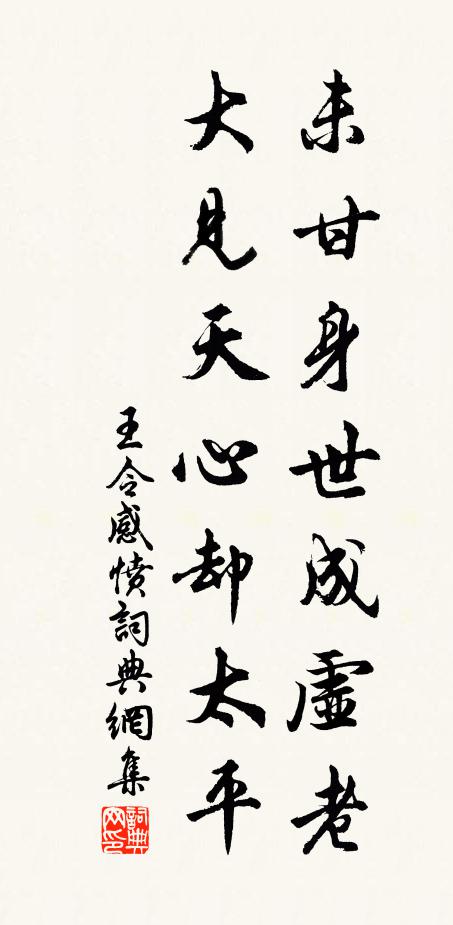 未甘身世成虛老
大見天心却太平
王令感憤詞典網集
詞典网印